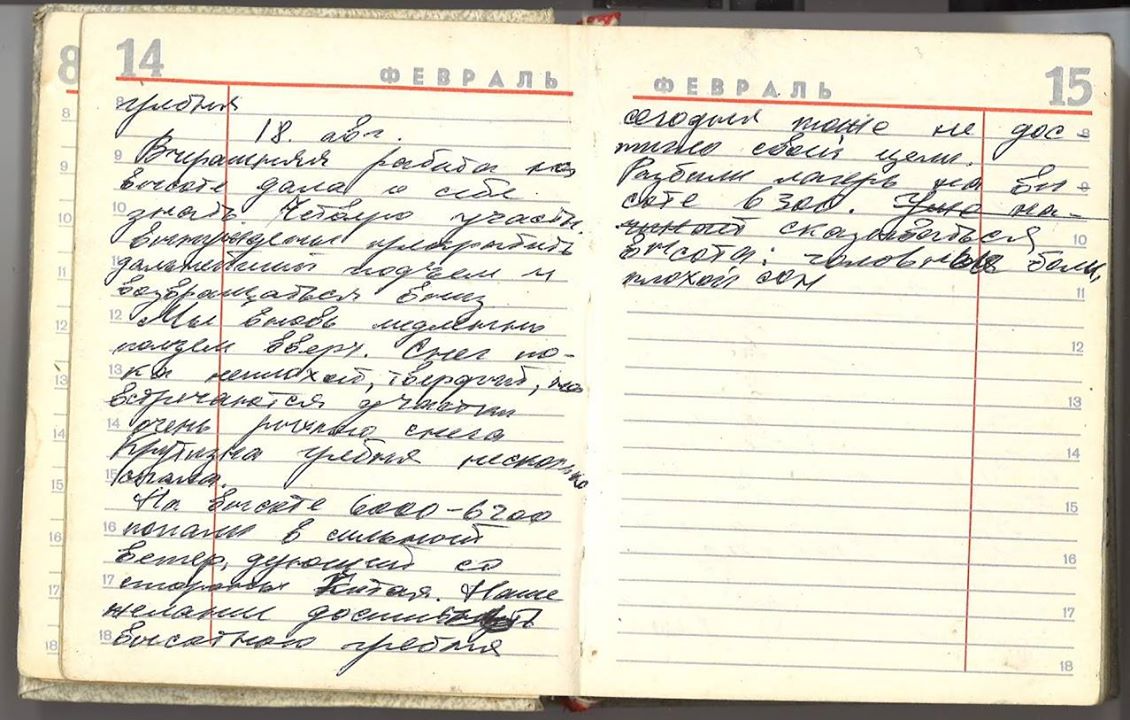 14 ФЕВРАЛЬ
гребня
18. авг.
Вчерашняя работа на
высоте дала о себе
знать. Четверо участн.
вынуждены прекратить
дальнейший подъем и
возвращаться вниз
Мы вновь медленно
ползем вверх. Снег по-
ка неплохой, твердый, но
встречаются участки
очень рыхлого снега
Крутизна гребня несколько
спала.
На высоте 6000-6200
попали в сильный
ветер, дующий со
стороны Китая. Наше
желание достигнуть
высотного гребня
ФЕВРАЛЬ 15
сегодня тоже не дос-
тигло своей цели.
Разбили лагерь на вы-
соте 6300. Уже на-
чинает сказываться
высота: головные боли,
плохой сон
8
8
9
9
10
11
12
12
13
13
14
14
15
15
16
16
17
17
18
18
8
9
9
10
11
12
13
14
15
16
17
18